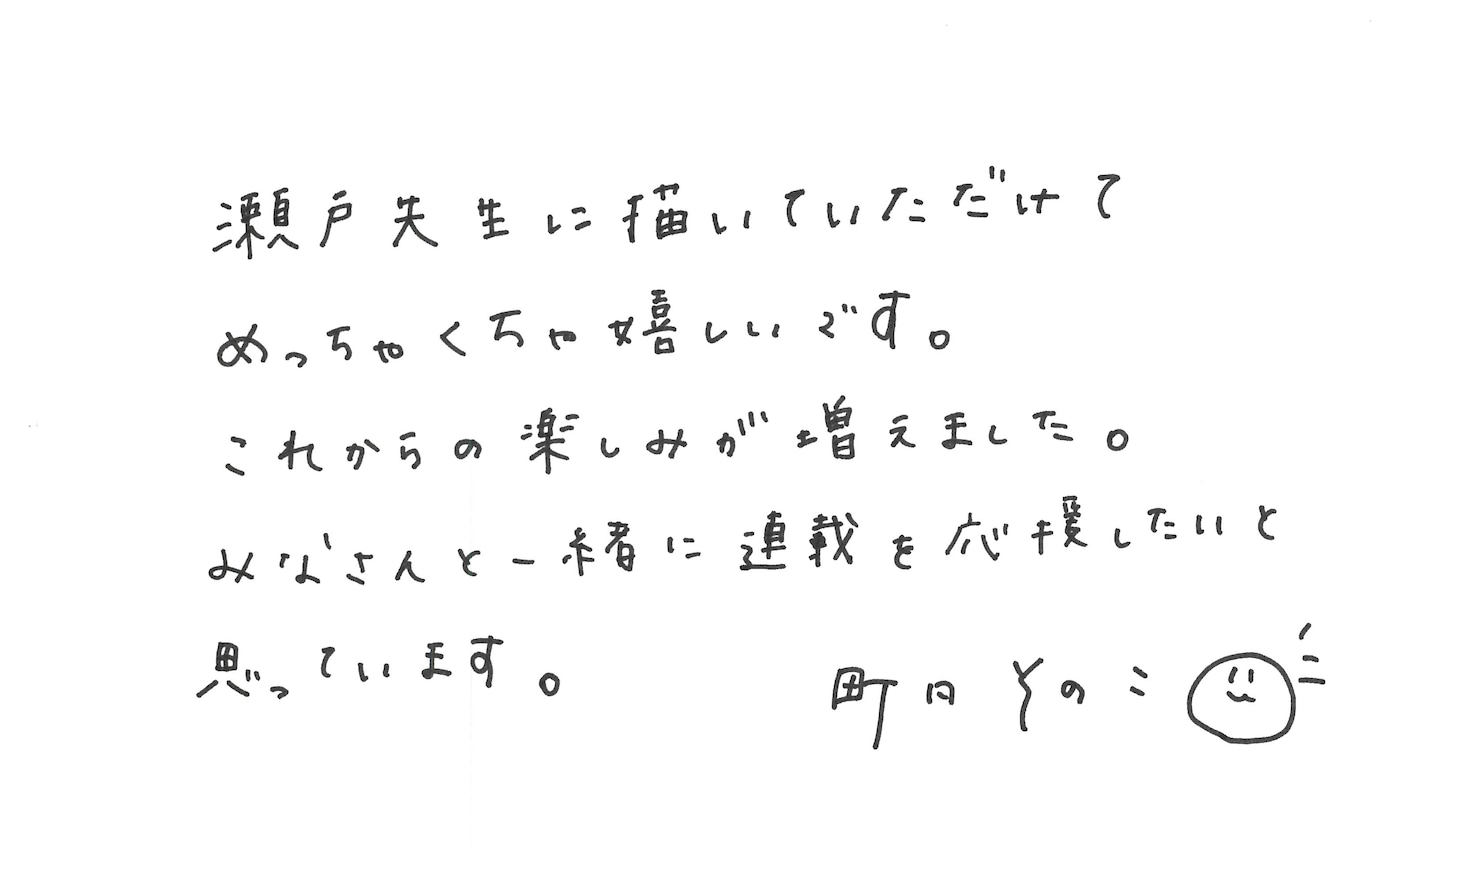 瀬戸先生に描いていただけて
めっちゃくちゃ嬉しいです。
これからの楽しみが増えました。
みなさんと一緒に連載を応援したいと
思っています。
町田そのこ